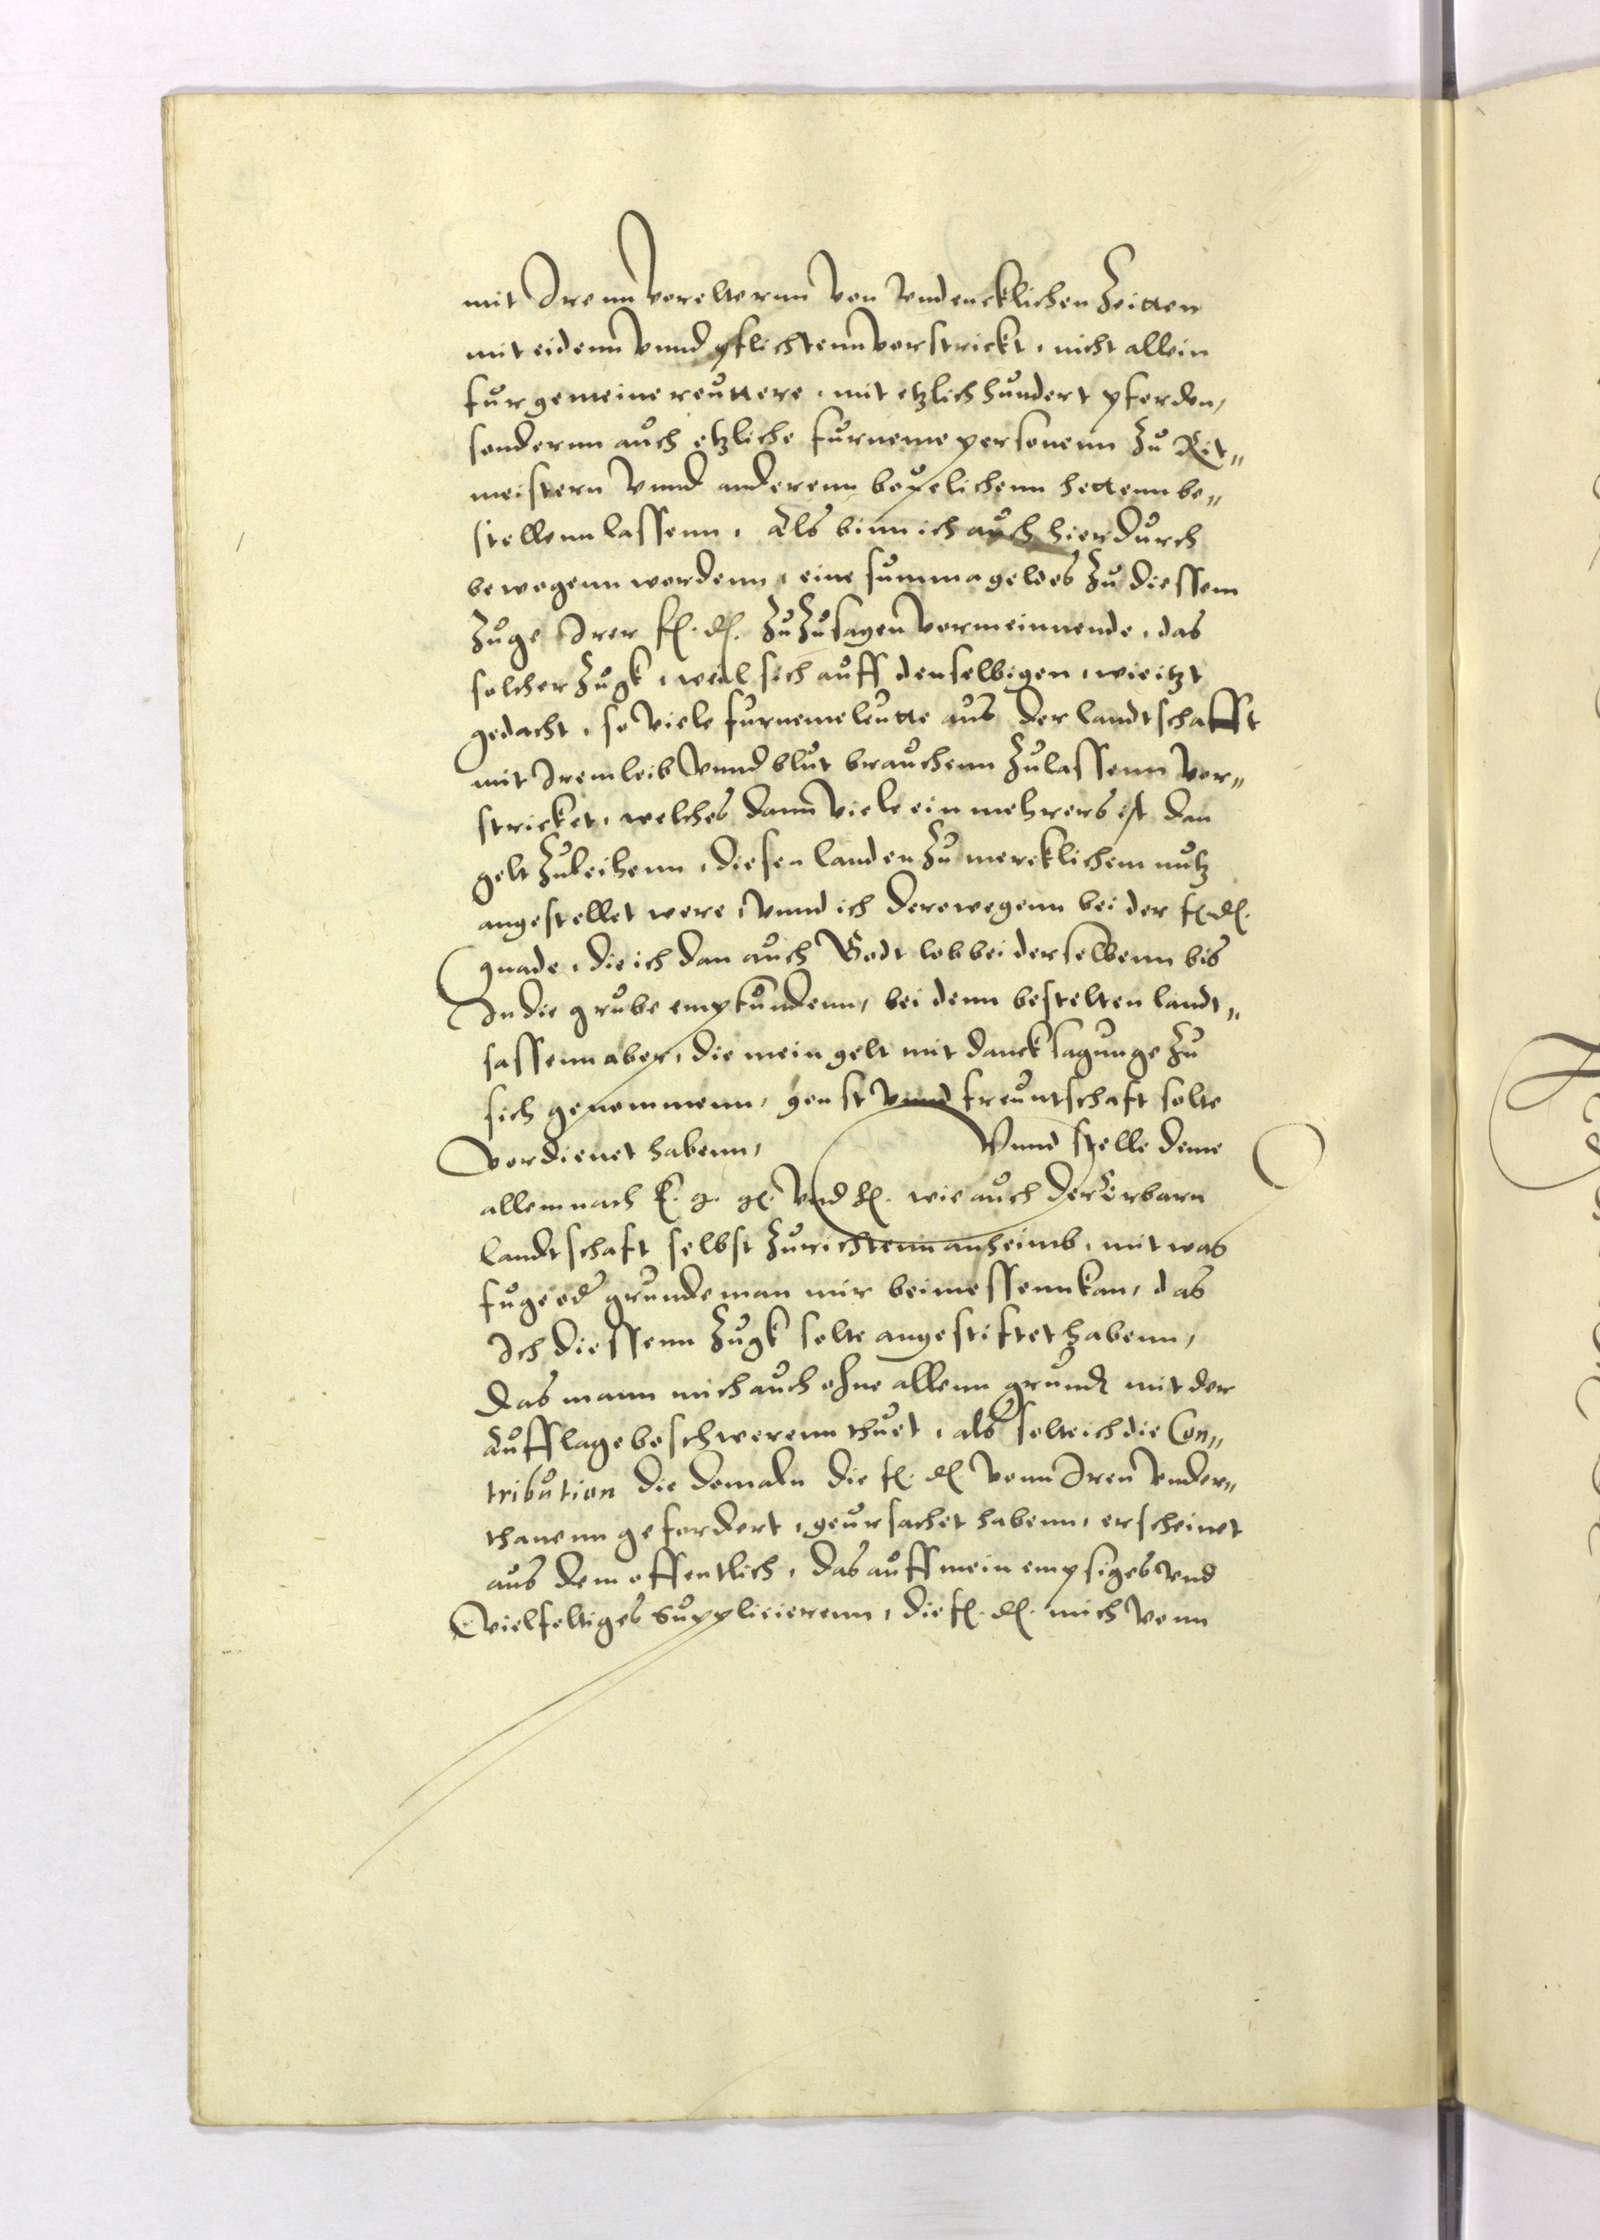 mit Irenn vorelternn von vndencklichen Zeitten
mit eidenn vnnd pflichtenn vorstrickt, nicht allein
fur gemeine reuttere, mit etzlich hundert pferden,
sondernn auch etzliche furneme personenn zu Rit„
meistern vnnd anderenn beuelichenn hettenn be„
stellenn lassenn, Als binn ich auch hierdurch
bewogenn wordenn, eine summa geldes zu diessem
zuge Irer f. d. zuzusagen vormeinnende, das
solcher Zugk, weil sich auff denselbigen, wie itzt
gedacht, so viele furneme leutte aus der landtschafft
mit Irem leib vnnd blut brauchenn zulassenn vor„
stricket, welches dann viele ein mehrers ist dan
gelt zuleihenn, diesen landen zu mercklichem nutz
angestellet were, vnnd ich derewegenn bei der f. d.
gnade, die ich dan auch Godt lob bei derselbenn bis
In die grube empfundenn, bei denn bestelten landt„
sassenn aber, die mein gelt mit dancksagunge zu
sich genommenn, gonst vnnd freuntschaft solte
vordienet habenn, Vnnd stelle deme
allem nach E. g. g. vnd h. wie auch der Erbarn
landtschaft selbst zurichtenn anheimb, mit was
fuge od grunde man mir beimessenn kan, das
Ich diessenn Zugk solte angestiftet habenn,
Das mann mich auch ohne allenn grundt mit der
Aufflage beschwerenn thuet, als solte ich die Con„
tribution die domaln die f. d. vonn Iren vnder„
thanenn gefordert, geursachet habenn, erscheinet
aus dem offentlich, das auff mein empsiges vnd
vielfeltiges Supplicierenn, die f. d. mich vonn